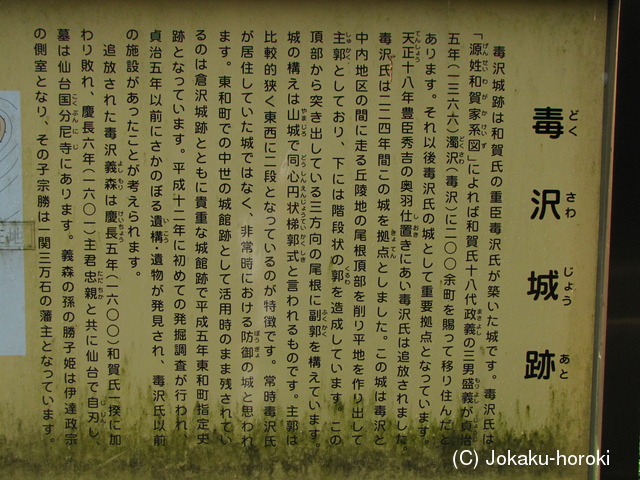 毒沢城跡
どく さわ じょう あと
毒沢城跡は和賀氏の重臣毒沢氏が築いた城です。毒沢氏は
「源姓和賀家系図」によれば和賀氏十八代政義の三男盛義が貞治
五年(一三六六)濁沢(毒沢)に二〇〇余町を賜って移り住んだと
あります。それ以後毒沢氏の城として重要拠点となっています。
天正十八年豊臣秀吉の奥羽仕置きにあい毒沢氏は追放されました。
毒沢氏は二二四年間この城を拠点としました。この城は毒沢と
中内地区の間に走る丘陵地の尾根頂部を削り平地を作り出して
主郭としており、下には階段状の郭を造成しています。この
頂部から突き出している三方向の尾根に副郭を構えています。
城の構えは山城で同心円状梯郭式と言われるものです。主郭は
比較的狭く東西に二段となっているのが特徴です。常時毒沢氏
が居住していた城ではなく、非常時における防御の城と思われ
ます。東和町での中世の城館跡として活用時のまま残されてい
るのは倉沢城跡とともに貴重な城館跡で平成五年東和町指定史
跡となっています。平成十二年に初めての発掘調査が行われ
貞治五年以前にさかのぼる遺構・遺物が発見され、毒沢氏以前
の施設があったことが考えられます。
追放された毒沢義森は慶長五年(一六〇〇)和賀氏一揆に加
わり敗れ、慶長六年(一六〇一)主君忠親と共に仙台で自刃し、
墓は仙台国分尼寺にあります。義森の孫の勝子姫は伊達政宗
の側室となり、その子宗勝は一関三万石の藩主となっています。
(C) Jokaku-horoki